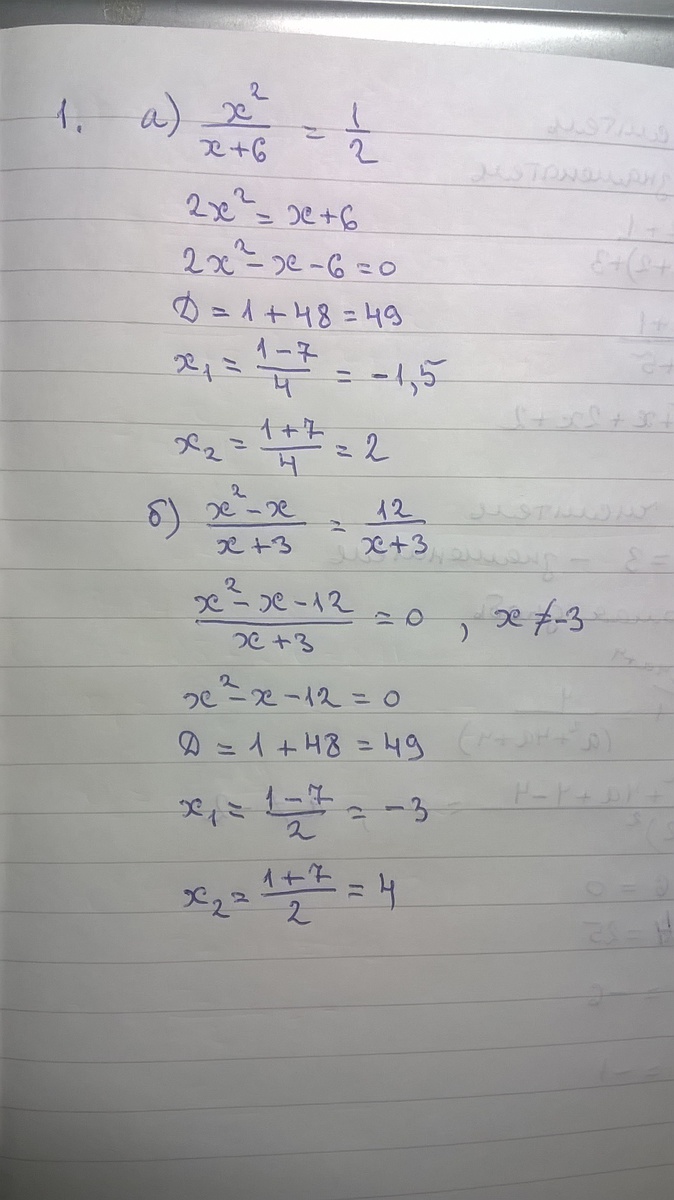 1. а) x²/(x+6) = 1/2
2x² = x+6
2x² - x - 6 = 0
D = 1 + 48 = 49
x₁ = (1-7)/4 = -1,5
x₂ = (1+7)/4 = 2
б) (x² - x)/(x+3) = 12/(x+3)
(x² - x - 12)/(x+3) = 0 , x ≠ -3
x² - x - 12 = 0
D = 1 + 48 = 49
x₁ = (1-7)/2 = -3
x₂ = (1+7)/2 = 4